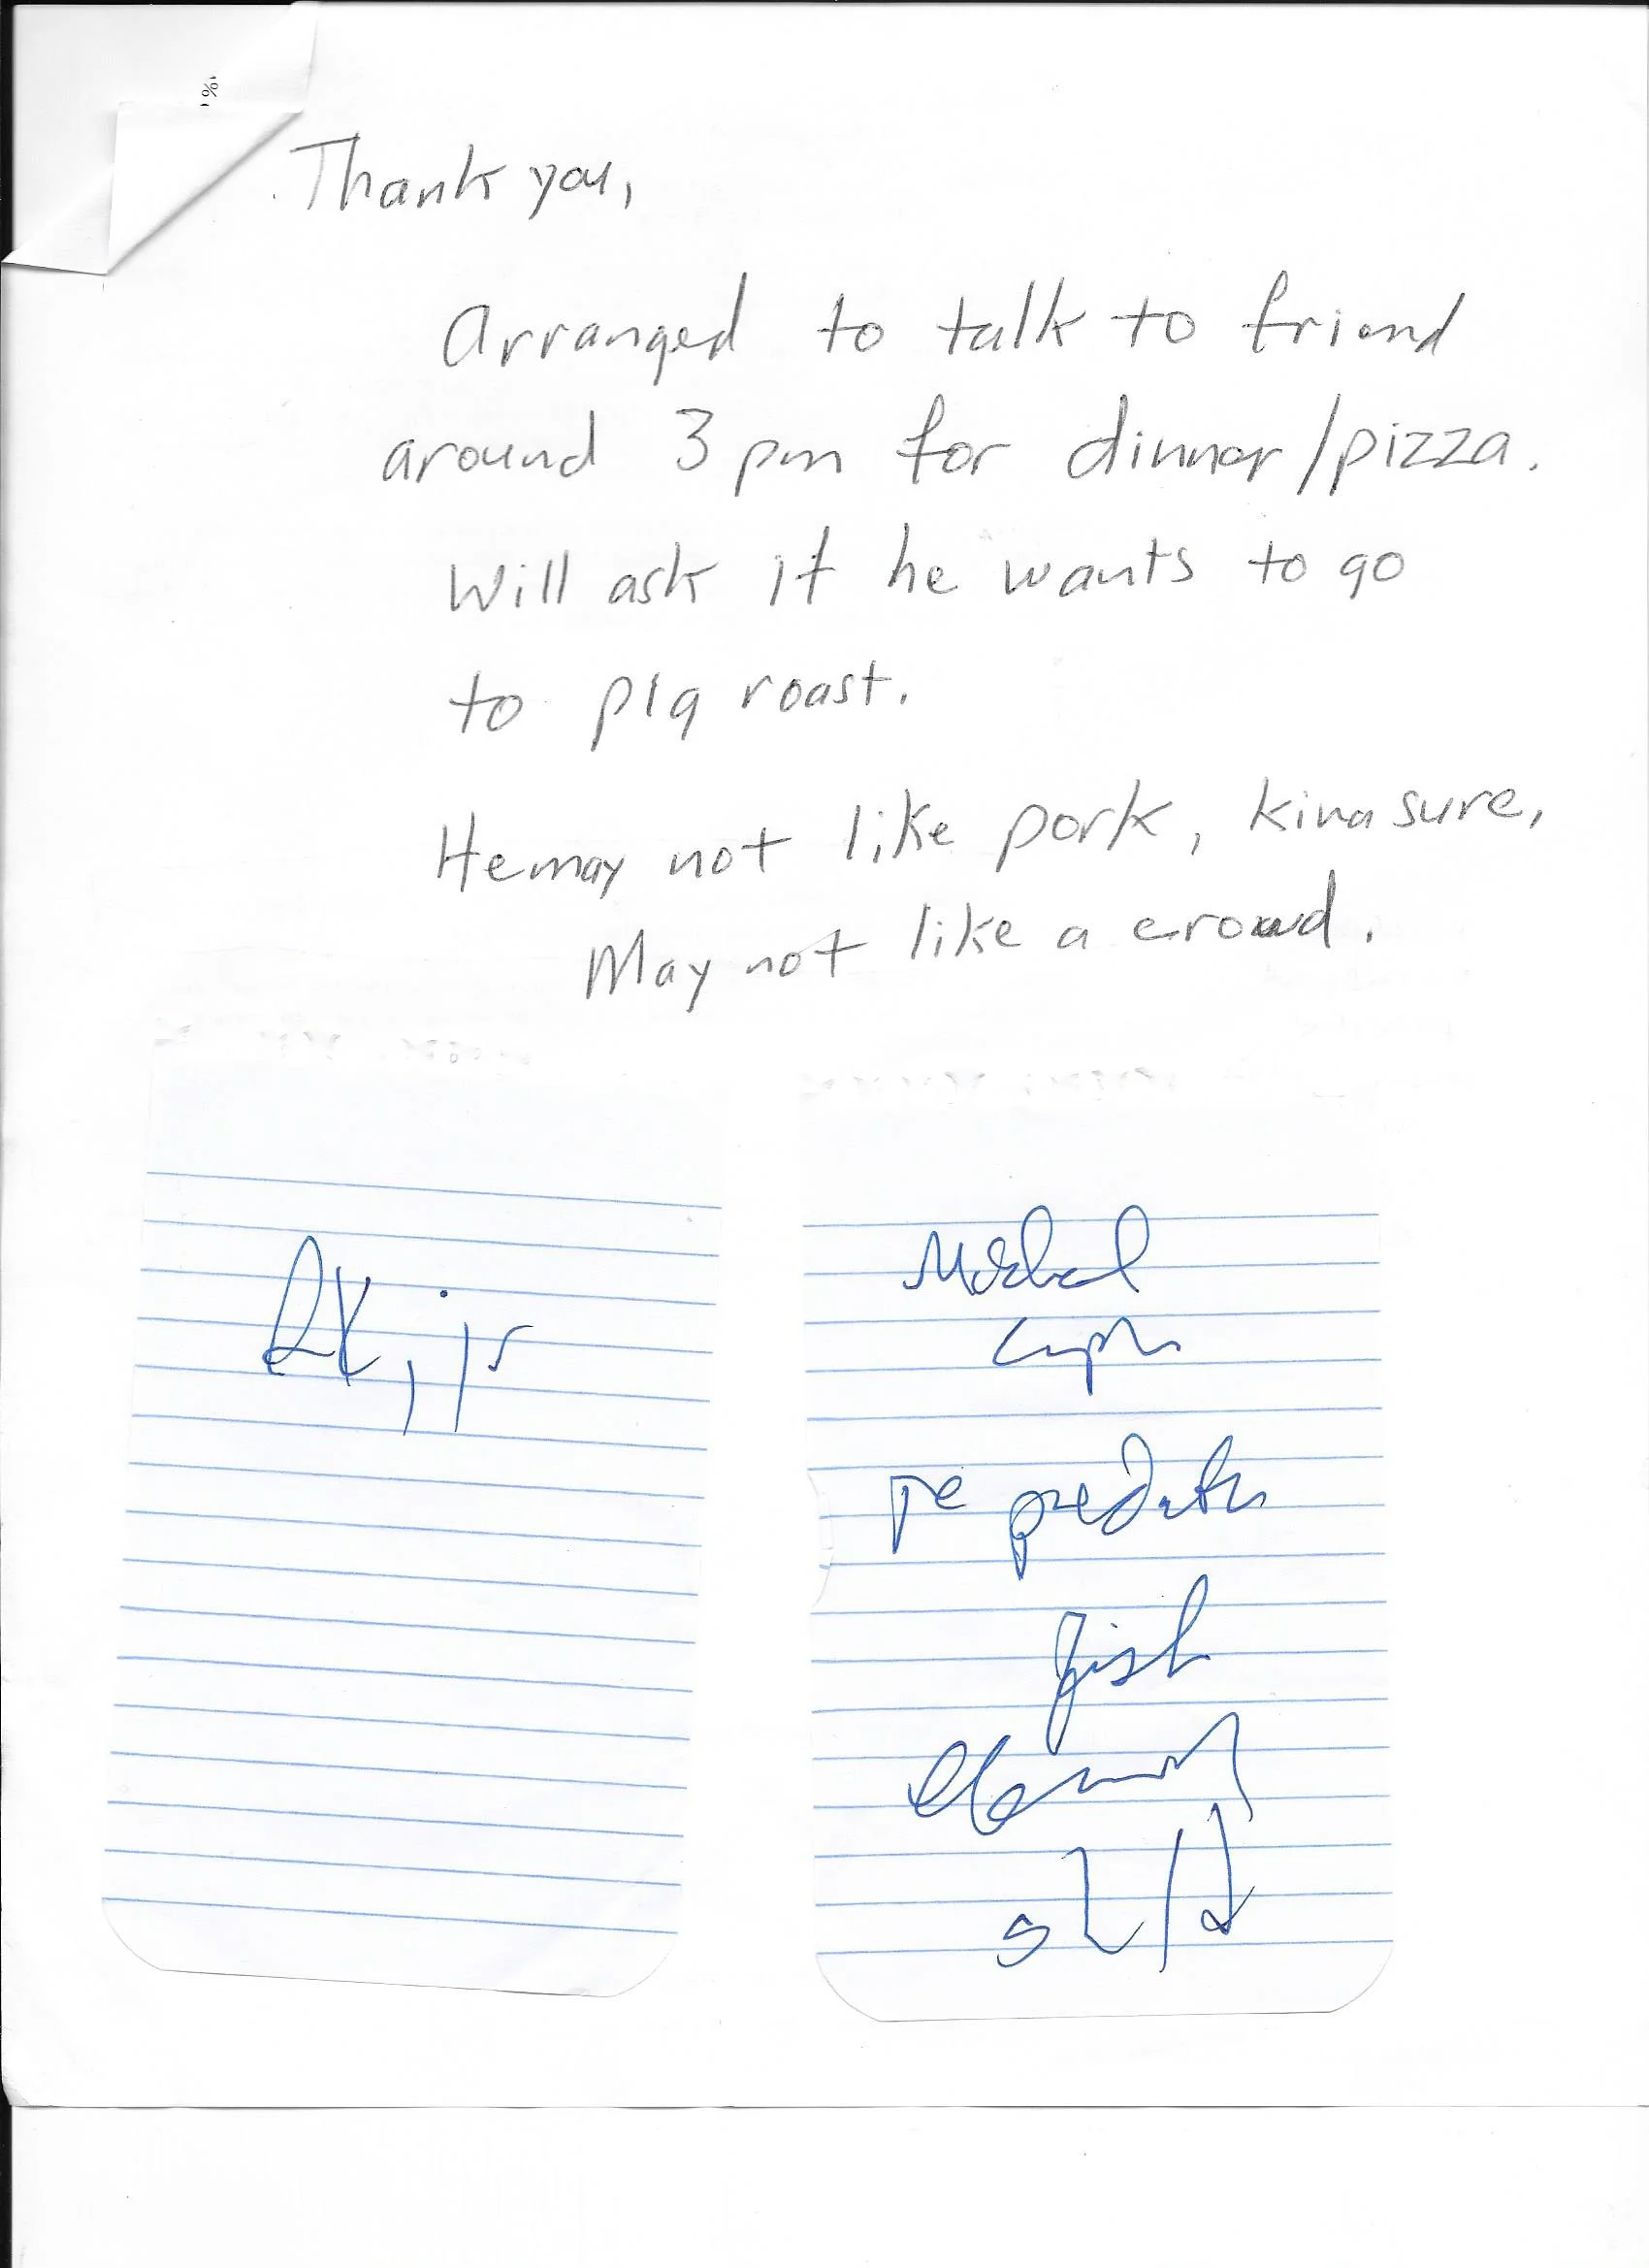 %
Thank you,
Arranged to talk to friend
around 3 pm for dinner/pizza.
Will ask if he wants to go
to pig roast.
He may not like pork, kina sure,
May not like a crowd.
RK, jr
Michael
fish